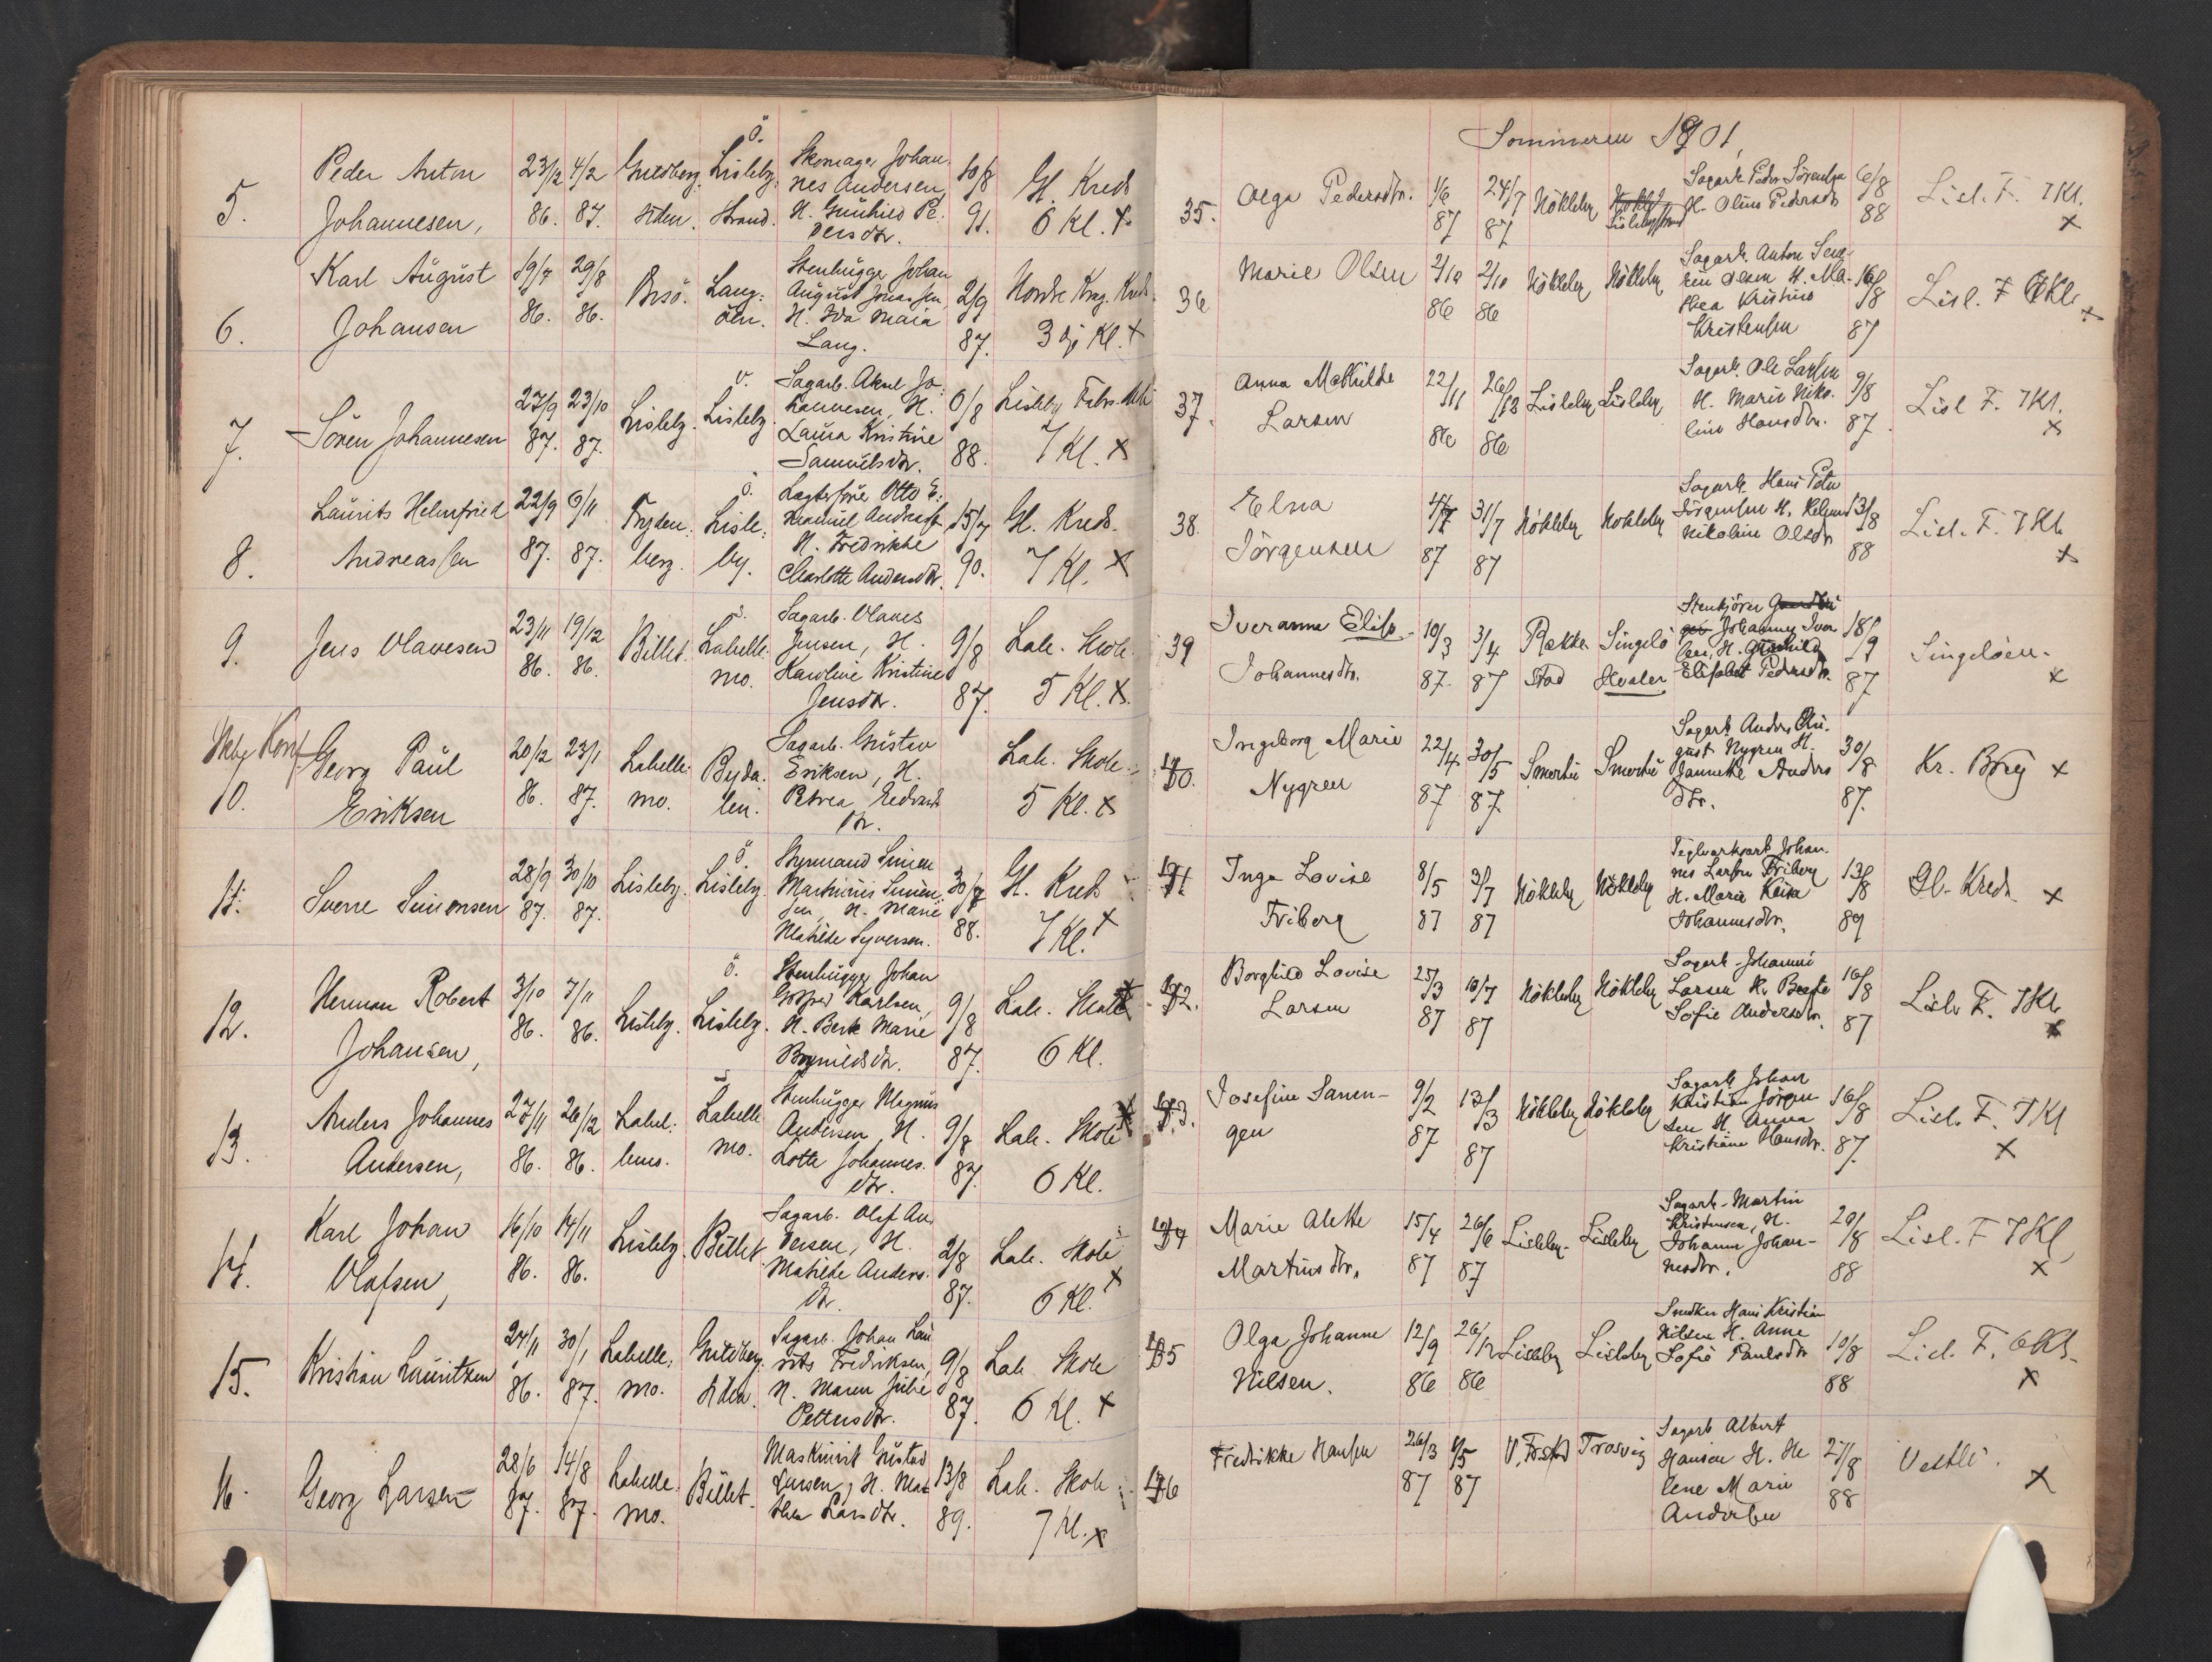 5.
Peder Anton
Johannesen,
23/12 4/2
86. 87.
Guldberg.
siden.
ö.
Lisleby.
strand.
Skomager Johan
nes Andersen,
H. Gunhild Pe
dersdtr.
10/8
91.
Gl. Kreds
6 Kl. x
6.
Karl August
Johansen
19/7 29/8
86. 86.
Brsö.
Lang:
öen.
Stenhugger Johan
August Jonassen,
H. Ida Maia
Lang.
2/9
87.
Nordre Krag. Kreds.
3 dje Kl. x
7.
Sören Johannesen
27/9 23/10
87. 87.
Lisleby.
v.
Lisleby.
Sagarb. Aksel Jo:
hannesen, H.
Laura Kristine
Samuelsdtr.
6/8
88.
Lisleby Fabr.
7 Kl. x
8.
Laurits Helmfried
Andreassen
22/9 6/11
87. 87.
Fryden:
berg.
ö.
Lisle:
by.
Lagterfører Otto E:
manuel Andreass.
H. Fredrikke
Charlotte Andersdtr.
15/7
90.
Gl. Kreds.
7 Kl. x
9.
Jens Olavesen
23/11 19/12
86. 86.
Billet.
Labelle
mo.
Sagarb. Olaves
Jensen, H.
Karoline Kristine
Jensdtr.
9/8
87.
Lab. Skole.
5 Kl. x.
Konf
10.
Georg Paul
Eriksen
20/12 23/1
86. 87.
Labelle.
mo.
Byda.
len.
Sagarb. Gustav
Eriksen, H.
Petrea
dtr.
Lab. Skole.
5 Kl. x
11.
Sverre Simonsen
28/9 30/10
87. 87.
Lisleby.
ö.
Lisleby.
Styrmand Simon
Martinius Simon:
sen, H. Marie
Matilde Syversen.
30/7
88.
Gl. Kreds
7 Kl. x
12.
Herman Robert
Johansen,
3/10 7/11
86. 86.
Lisleby.
ö.
Lisleby.
Stenhugger Johan
Gotfred Karlsen,
H. Berte Marie
Brynildsdtr.
9/8
87.
Lab. Skole x
6 Kl.
13.
Anders Johannes
Andersen,
27/11 26/12
86. 86.
Label:
lemo.
Labelle
mo.
Stenhugger Magnus
Andersen, H.
Lotte Johannes.
dtr.
9/8
87.
Lab. Skole x
6 Kl.
14.
Karl Johan
Olafsen,
16/10 14/11
86. 86.
Lisleby.
Billet.
Sagarb. Olaf An.
dersen, H.
Matilde Anders.
dtr.
2/8
87.
Lab. Skole
6 Kl. x
15.
Kristian Lauritzen
24/11 30/1
86. 87.
Labelle,
mo.
Guldberg.
siden.
Sagarb. Johan Lau
rits Fredriksen,
H. Maren Julie
Pettersdtr.
9/8
87.
Lab. Skole
6 Kl. x
16.
Georg Larsen
28/6 14/8
87. 87.
Labelle.
mo.
Billet.
Maskinist Gustav
Larsen, H. Mat
thea Larsdtr.
13/8
89.
Lab. Skole
7 Kl. x
Sommeren 1901,
35.
Olga Pedersdtr.
1/6 24/7
87 87
Nökleby
Sagarb. Peder
H. Oline Pedersdtr
6/8
88
Lisl. F. 7 Kl.
x
36
Marie Olsen
2/10 2/10
86 86
Nökleby Nökleby
Sagarb. Anton Seve
rin Olsen H. Ma-
thea Kristine
Kristensen
16/8
87
Lisl. F Kl.
x
37.
Anna Mathilde
Larsen
22/11 26/12
86 86
Lisleby Lisleby
Sagarb. Ole Larsen
H. Marie Niko.
line Hansdtr.
9/8
87.
Lisl F. 7 Kl.
x
38.
Elna
Jörgensen
31/7
87 87
Nökleby Nokleby
Sagarb. Hans Peter
Jörgensen H.
Nikoline Olsdtr
13/8
88
Lisl. F. 7 Kl.
x
39
Iveranna Elise
Johannesdtr.
10/3 3/4
87. 87
Rakke
stad
Singelö
Hvaler
Stenkjörer
Johannes Iver
sen, H.
Elisabet Pedersdtr.
18/9
87
Singelöen.
x
40.
Ingeborg Marie
Nygren
22/4 30/5
87 87.
Smertu Smertu
Sagarb Anders Au.
gust Nygren H.
Janneke Anders
dtr.
30/8
87.
Kr. Brug x
41
Inga Lovise
Friberg
8/5 3/7
87 87
Nökleby Nökleby
Teglverksarb Johan.
nes Larsen Friberg
H. Marie Kaisa
Johannesdtr.
13/8
89
Gl. Kreds x
42.
Borghild Lovise
Larsen
25/3 10/7
87 87
Nökleby Nökleby
Sagarb. Johannes
Larsen H. Beate
Sofie Andersdtr.
16/8
87
Lisl. F. 7 Kl.
x
43.
Josefine Sannen-
gen
9/2 13/3
87 87
Nökleby Nökleby
Sagarb. Johan
Kristian Jörgen
sen H. Anna
Kristiane Hansdtr.
16/8
87.
Lisl. F. 7 Kl
x
44
Marie Alette
Martinsdtr.
15/4 26/6
87 87
Lisleby. Lisleby
Sagarb. Martin
Kristensen, H.
Johanne Johan-
nesdtr.
20/8
88
Lisl. F 7 Kl,
x
45
Olga Johanne
Nilsen.
12/9 26/12
86 86
Lisleby Lisleby
Snedker Hans Kristian
Nilsen H. Anne
Sofie Paulsdtr
10/8
88
Lisl. F. 6 Kl.
x
46
Fredrikke Hansen
26/3
87 87
V. Fr.std Trosvig
Sagarb Albert
Hansen H. He
lene Marie
Andersen
27/8
88
Vestli.
x